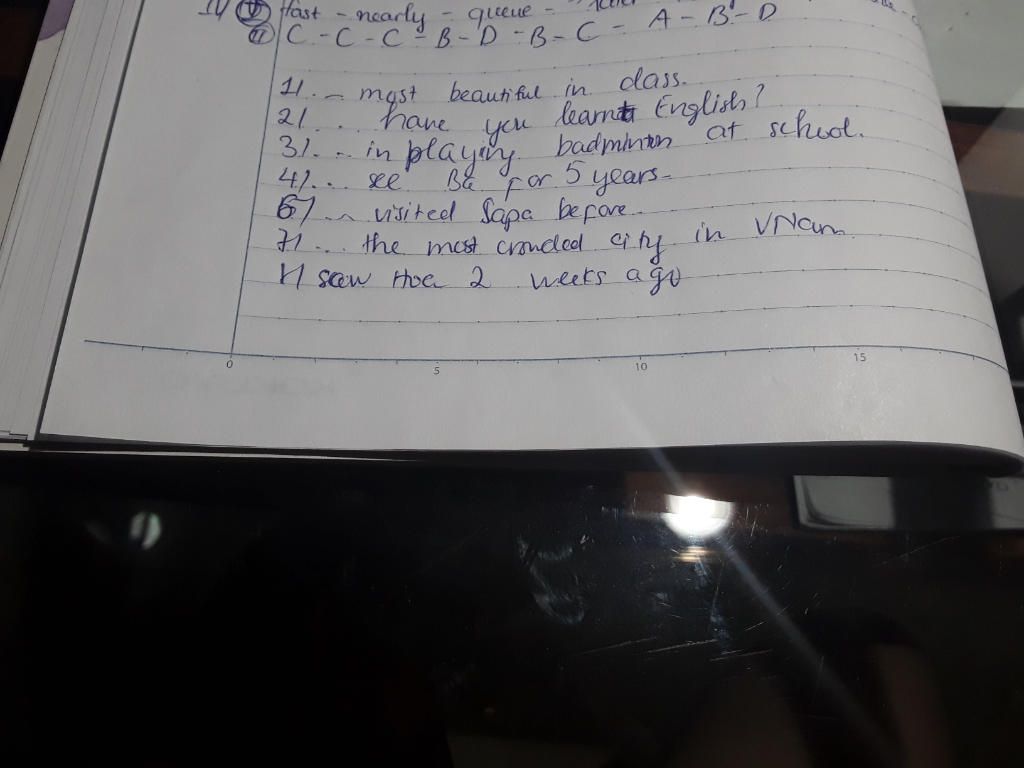 IV fast - nearly - queue -
C - C - C - B - D - B - C - A - B - D
1/. most beautiful in class.
2/ ... have you learnt English?
3/. .. in playing badminton at school.
4/. .. see Ba for 5 years.
6/ visited Sapa before
7/ ... the most crowded city in VNam
saw Hoa 2 weeks ago
0 5 10 15